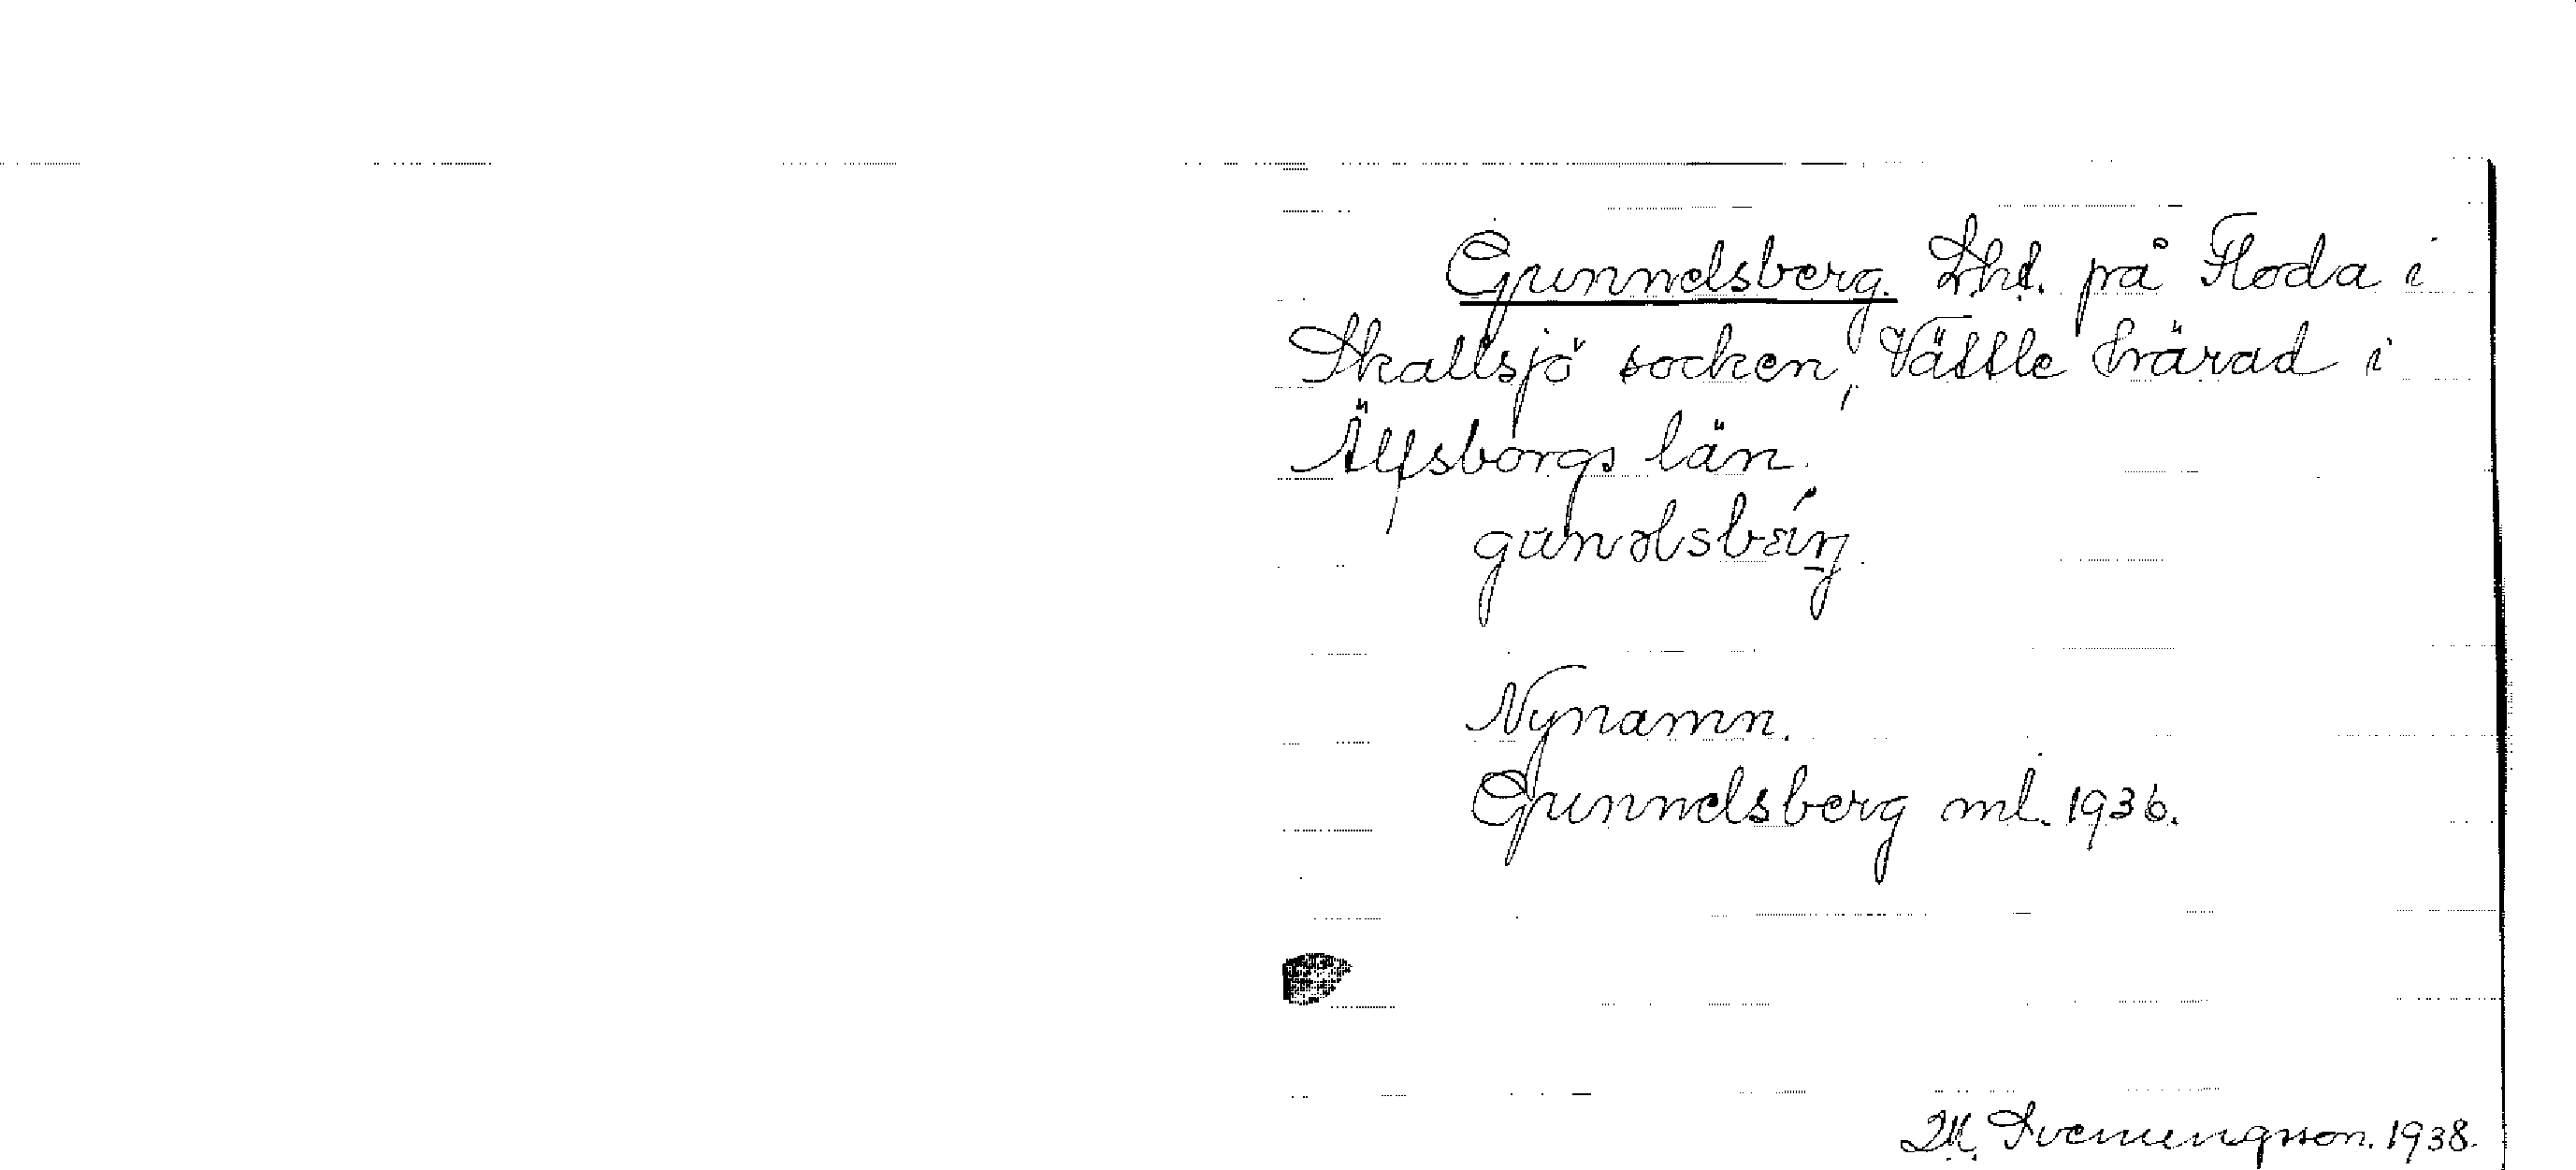 Gunnelsberg. Lht. på Floda i
Skallsjö socken, Vättle härad i
Älfsborgs län.
Nynamn.
Gunnelsberg ml. 1936.
M. Svenungsson. 1938.